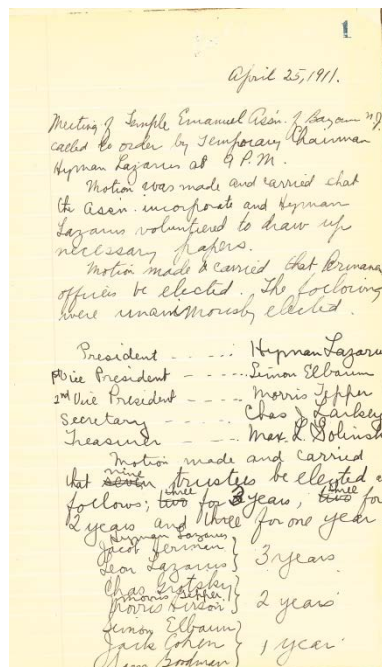 1
April 25, 1911.
Meeting of Temple Emanuel Assn. of Bayonne N.J.
called to order by Temporary Chairman
Hyman Lazarus at 9 P.M.
Motion was made and carried that
the Assn. incorporate and Hyman
Lazarus volunteered to draw up
necessary papers.
Motion made & carried that Permanen
offices be elected. The following
were unanimously elected.
President - - - - - Hyman Lazarus
1st Vice President - - - - Simon Elbaum
2nd Vice President - - - - Morris Tepper
Secretary - - - - Chas J.
Treasurer - - - - Max L. Solinsk
Motion made and carried
nine
that seven trustees be elected a
three three
follows; two for 3 years, two for
2 years and three for one year
Hyman Lazarus
Jacob Herman
Leon Lazarus } 3 years
Chas
Morris Tepper
Morris } 2 years
Simon Elbaum
Jack Cohen } 1 year
Goodman